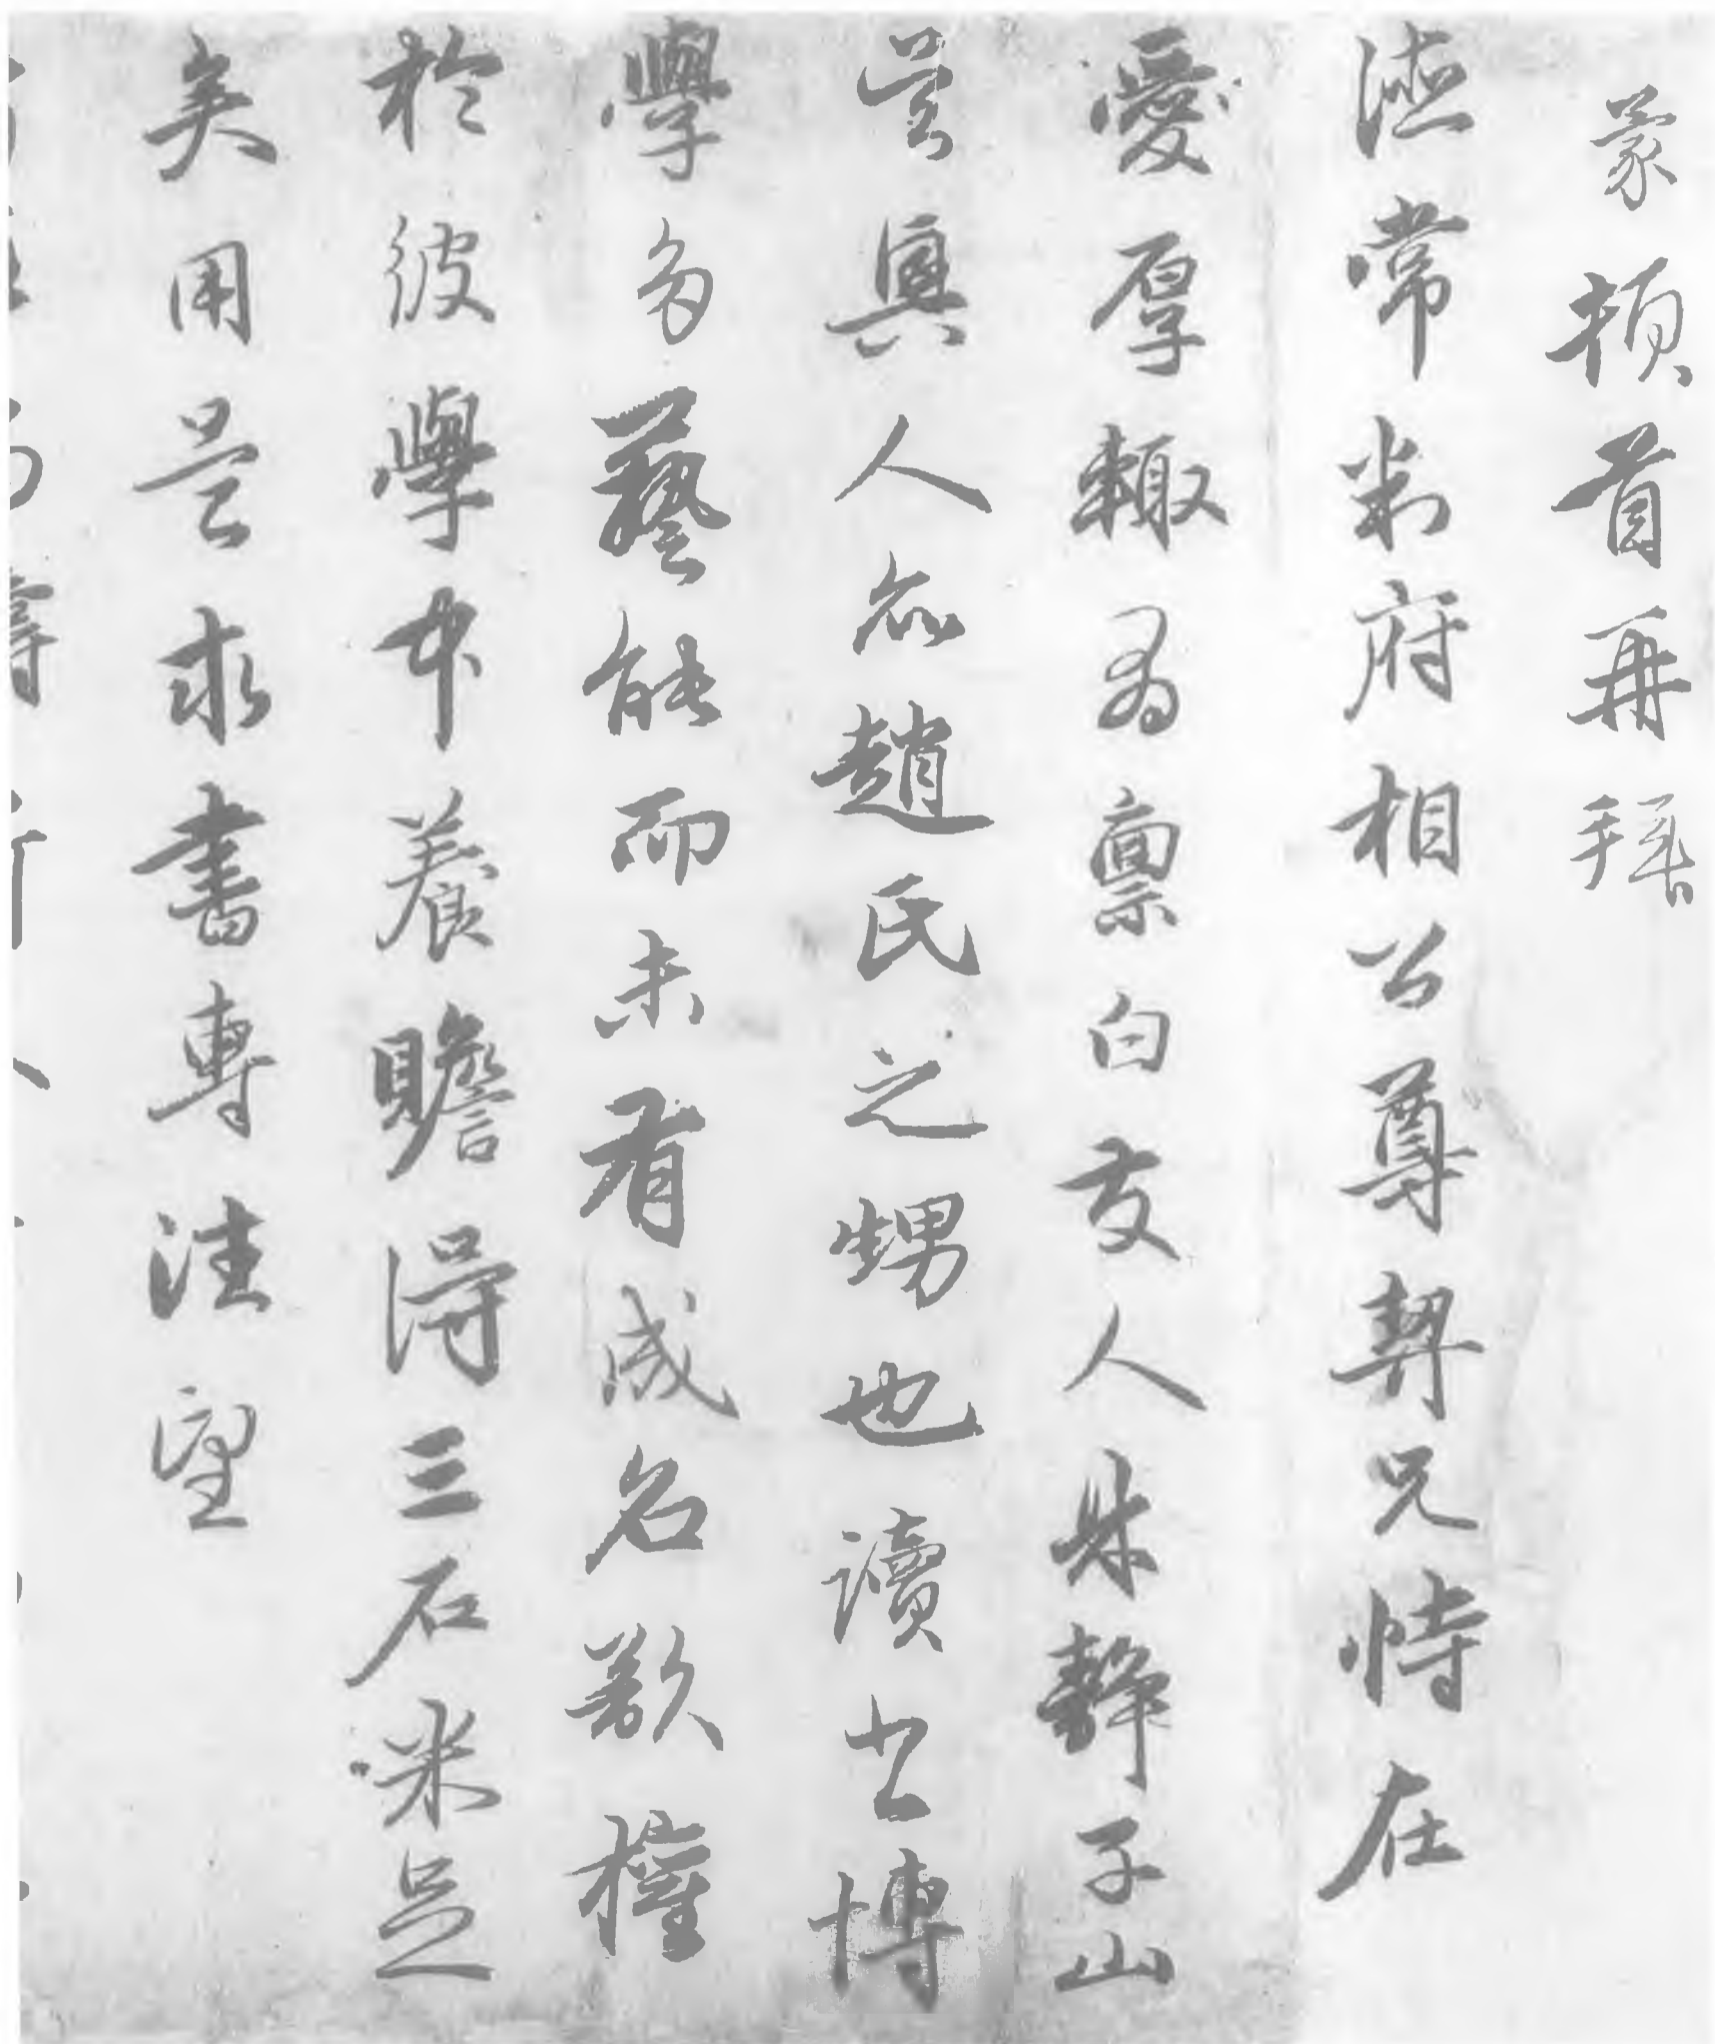 蒙頓首再拜
德常判府相公尊契兄恃在
愛厚輒為稟白友人朱靜子山
㠯真人於趙氏之甥也讀書博
學多藝能而未有成名歟權
於彼學中養贍得三石米足
矣用是求書專注望